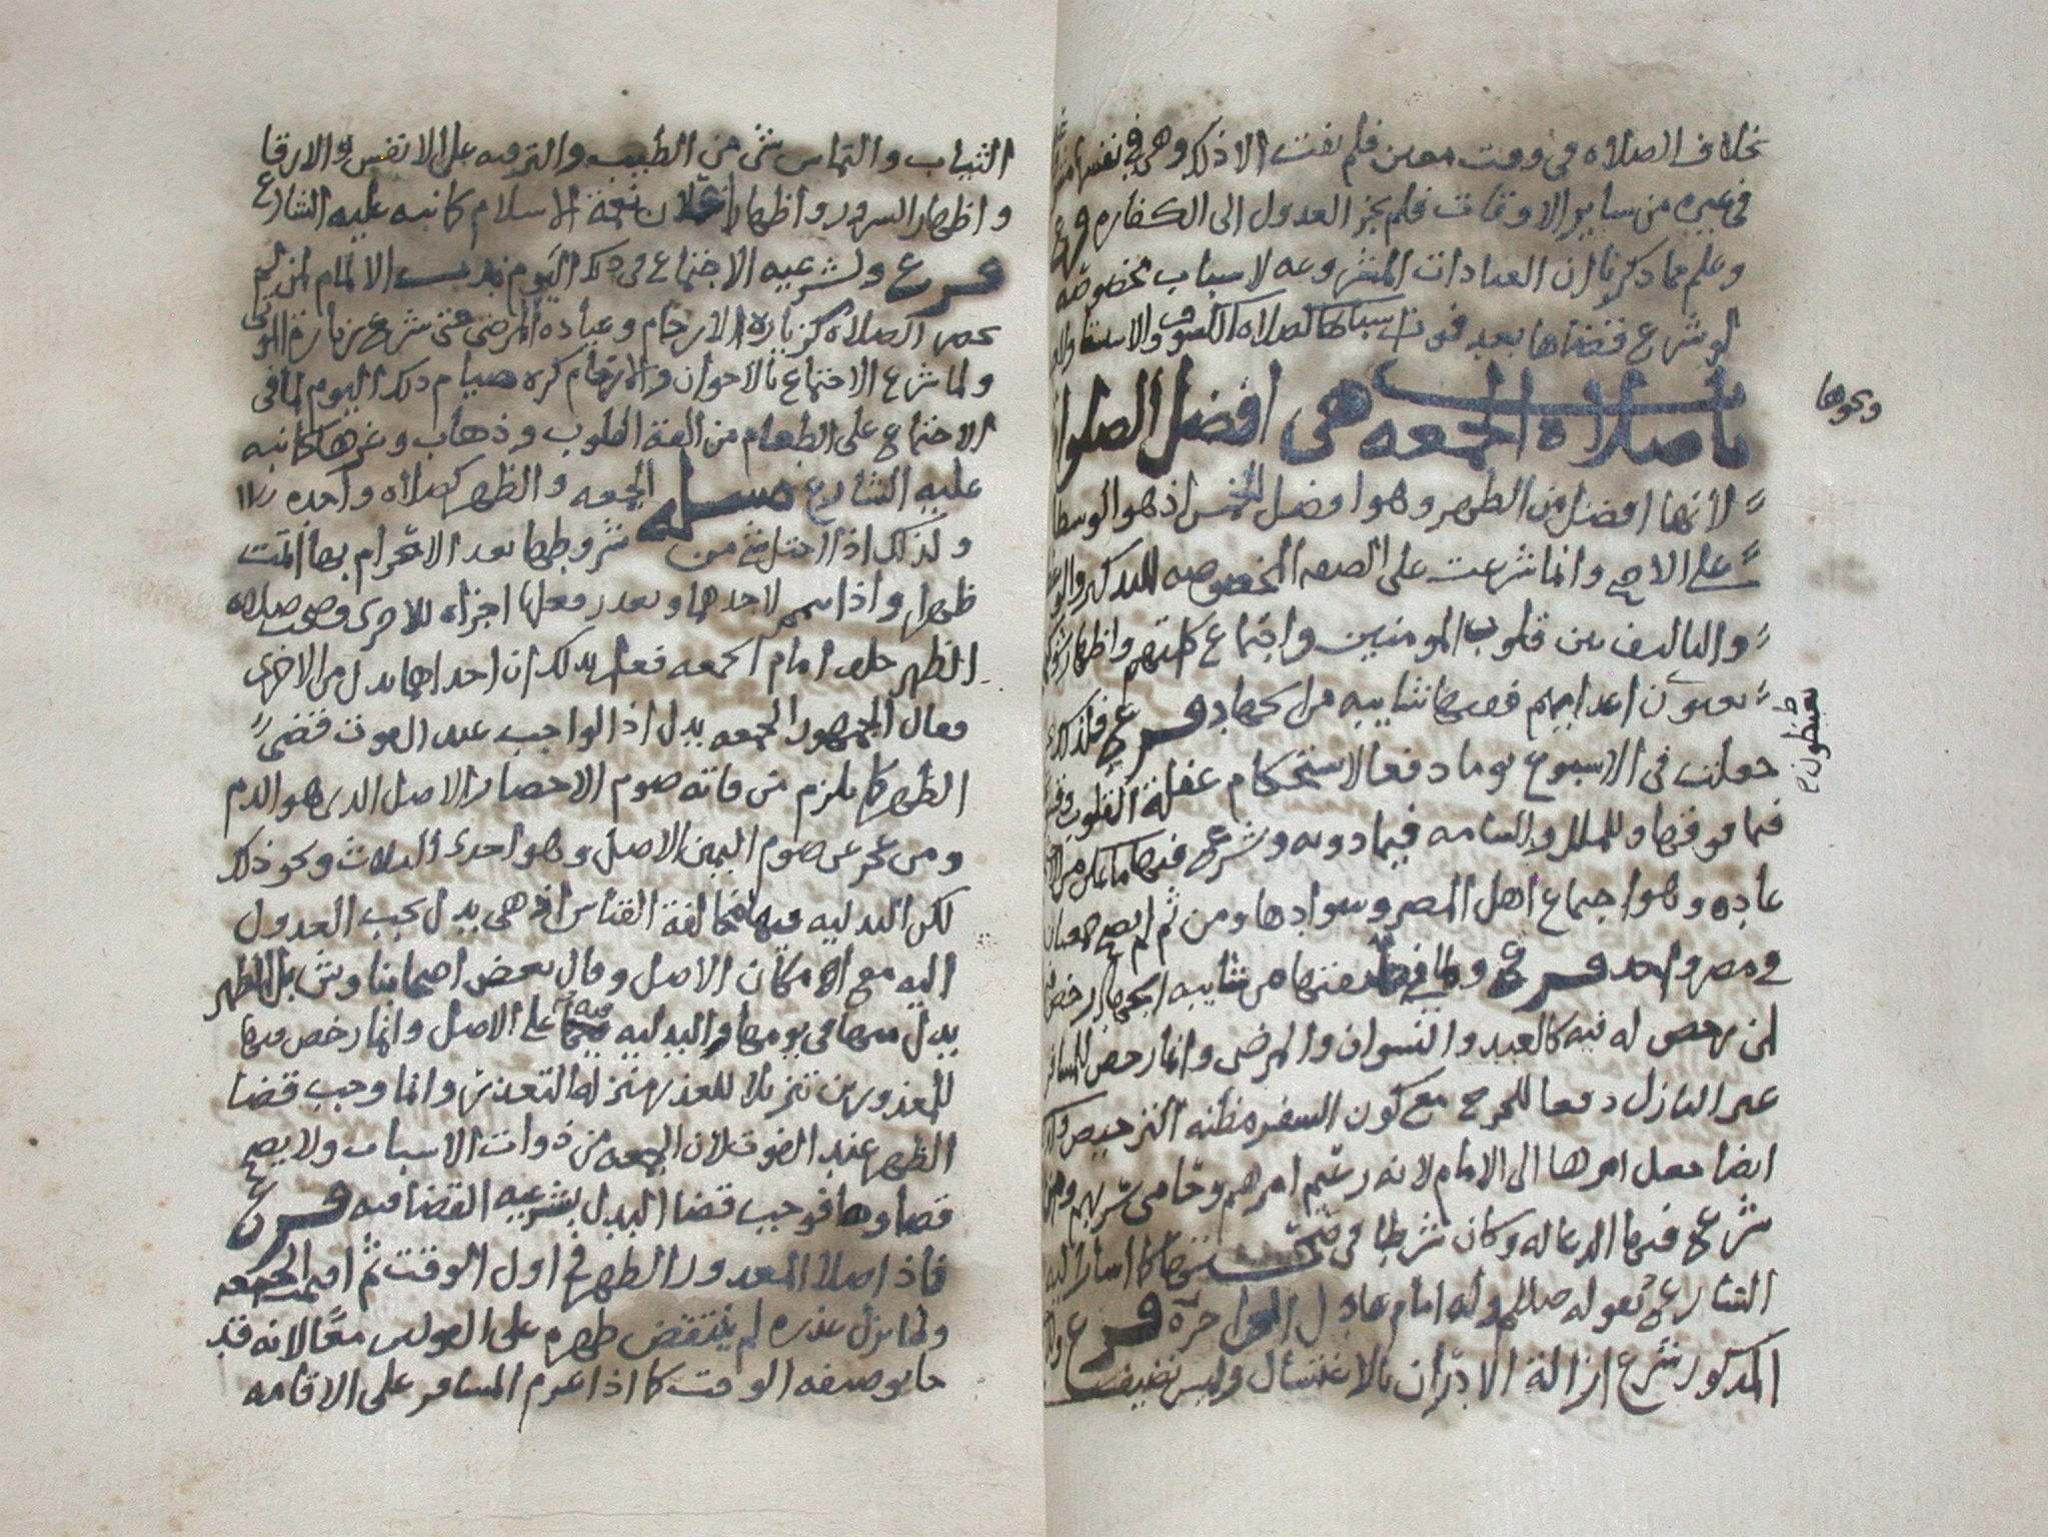 بخلاف الصلاه في وقت معين فلم يفت الا ذلك وهي في نفسها
في غيره من ساير الاوقات فلم يجز العدول الى الكفاره فرع
وعلم مما ذكرنا ان العبادات المشروعه لاسباب مخصوصه
لو شرع قضاها بعد فوت اسبابها كصلاه الكسوف والاستسقا
باب صلاه الجمعه هي افضل الصلوات
ونحوها
لانها افضل من الظهر وهو افضل الخمس اذ هو الوسطى
على الاصح وانما شرعت على الصفه المخصوصه للتذكير والوعظ
والتاليف بين قلوب المومنين واجتماع كلمتهم واظهار
اعدايهم ففيها شايبه من الجهاد فرع فلذلك
جعلت في الاسبوع يوما دفعا لاستحكام غفلة القلوب
فيما فوقها وللملل والسامه فيما دونه وشرع فيها
عاده وهو اجتماع اهل المصر وسوادها ومن ثم لم يصح جمعتان
في مصر واحد فرع ولما في من شايبه الجهاد رخص
لمن رخص له فيه كالعبيد والنسوان والمرضى وانما رخص للمسافر
غير النازل دفعا للحرج مع كون السفر مظنه الترخيص
ايضا جعل امرها الى الامام لانه زعيم امرهم وحامي سربهم ومن
شرع فيها الدعا له وكان شرطا في صحتها كما اشار اليه
الشارع بقوله صللم وله امام عادل او جاير فرع
المذكور شرع ازالة الادران بالاغتسال ولبس نضيف
الثياب والتماس شي من الطيب والترفيه على الانفس والارقا
واظهار السرور واظهار اعلان نعمة الاسلام كما نبه عليه الشارع
فرع ولشرعيه الاجتماع في ذلك اليوم ندب الالمام لمن لم
يحضر الصلاه كزيارة الارحام وعياده المرضى حتى شرع زيارة الموتى
ولما شرع الاجتماع بالاخوان والارحام كره صيام ذلك اليوم لما في
الاجتماع على الطعام من الفة القلوب وذهاب وغرها كما نبه
عليه الشارع مسله الجمعه والظهر كصلاه واحده
ولذلك اذا اختل شي من شروطها بعد الاحرام بها اتمت
ظهرا واذا تيمم لاحدهما وتعذر فعلها اجزاه للاخرى وصحت صلاه
الظهر خلف امام الجمعه فعلم بذلك ان احداهما بدل من الاخرى
فقال الجمهور الجمعه بدل اذ الواجب عند الفوت قضى
الظهر كما يلزم من فاته صوم الاحصار الاصل الذي هو الدم
ومن عجز عن صوم اليمين الاصل وهو احدى الثلاث ونحو ذلك
لكن البدليه فيها مخالفة القياس اذ هي بدل يجب العدول
اليه مع امكان الاصل وقال بعض اصحابنا وش بل الظهر
بدل منها في يومها والبدليه فيه على الاصل وانما رخص فيها
للمعذورين تنزيلا للعذر منزله التعذر وانما وجب قضا
الظهر عند الفوت لان الجمعه من ذوات الاسباب ولا يصح
قضاوها فوجب قضا البدل بشرعيه القضا فيه فرع
فاذا صلا المعذور الظهر في اول الوقت ثم اقيمت الجمعه
ولما يزل عذره لم ينتقض ظهره على القولين معا لانه قد
جا بوضيفه الوقت كما اذا عزم المسافر على الاقامه